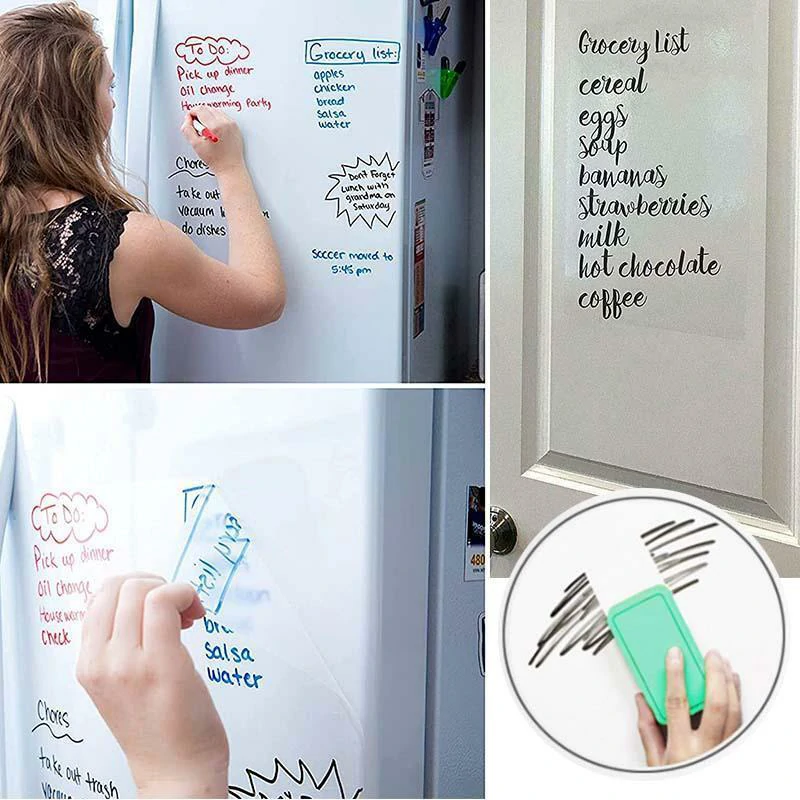 To Do:
Pick up dinner
Oil change
Housewarming Party
Chores
take out
vacuum
do dishes
Grocery list:
apples
chicken
bread
salsa
water
Don't Forget
Lunch with
grandma on
Saturday
Soccer moved to
5:45 pm
Grocery List
cereal
eggs
soup
bananas
strawberries
milk
hot chocolate
coffee
To Do:
Pick up dinner
Oil change
Housewarm
check
Chores
take out trash
vacuum
list
salsa
water
480